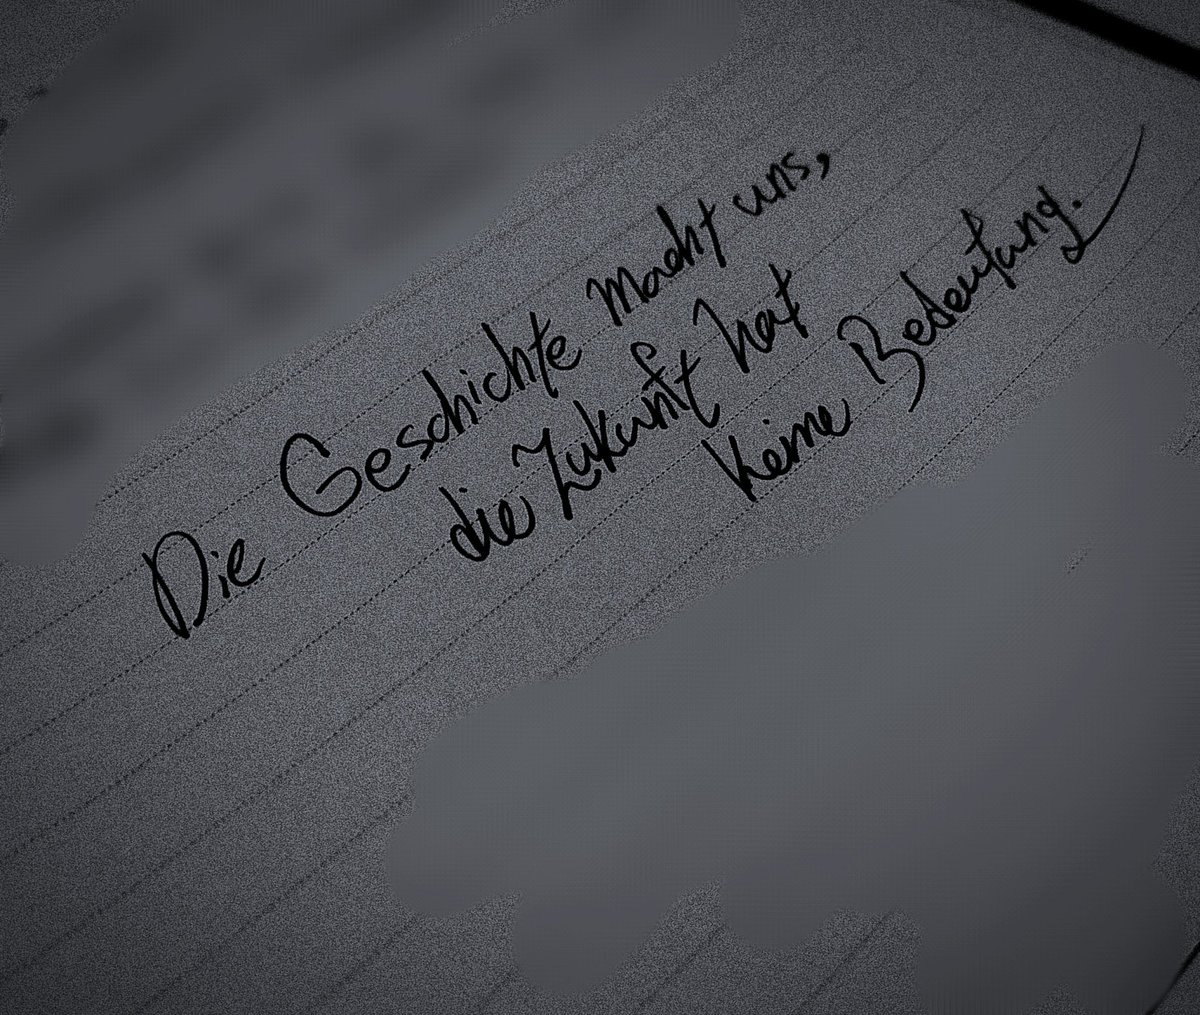 Die Geschichte macht uns,
die Zukunft hat
keine Bedeutung.